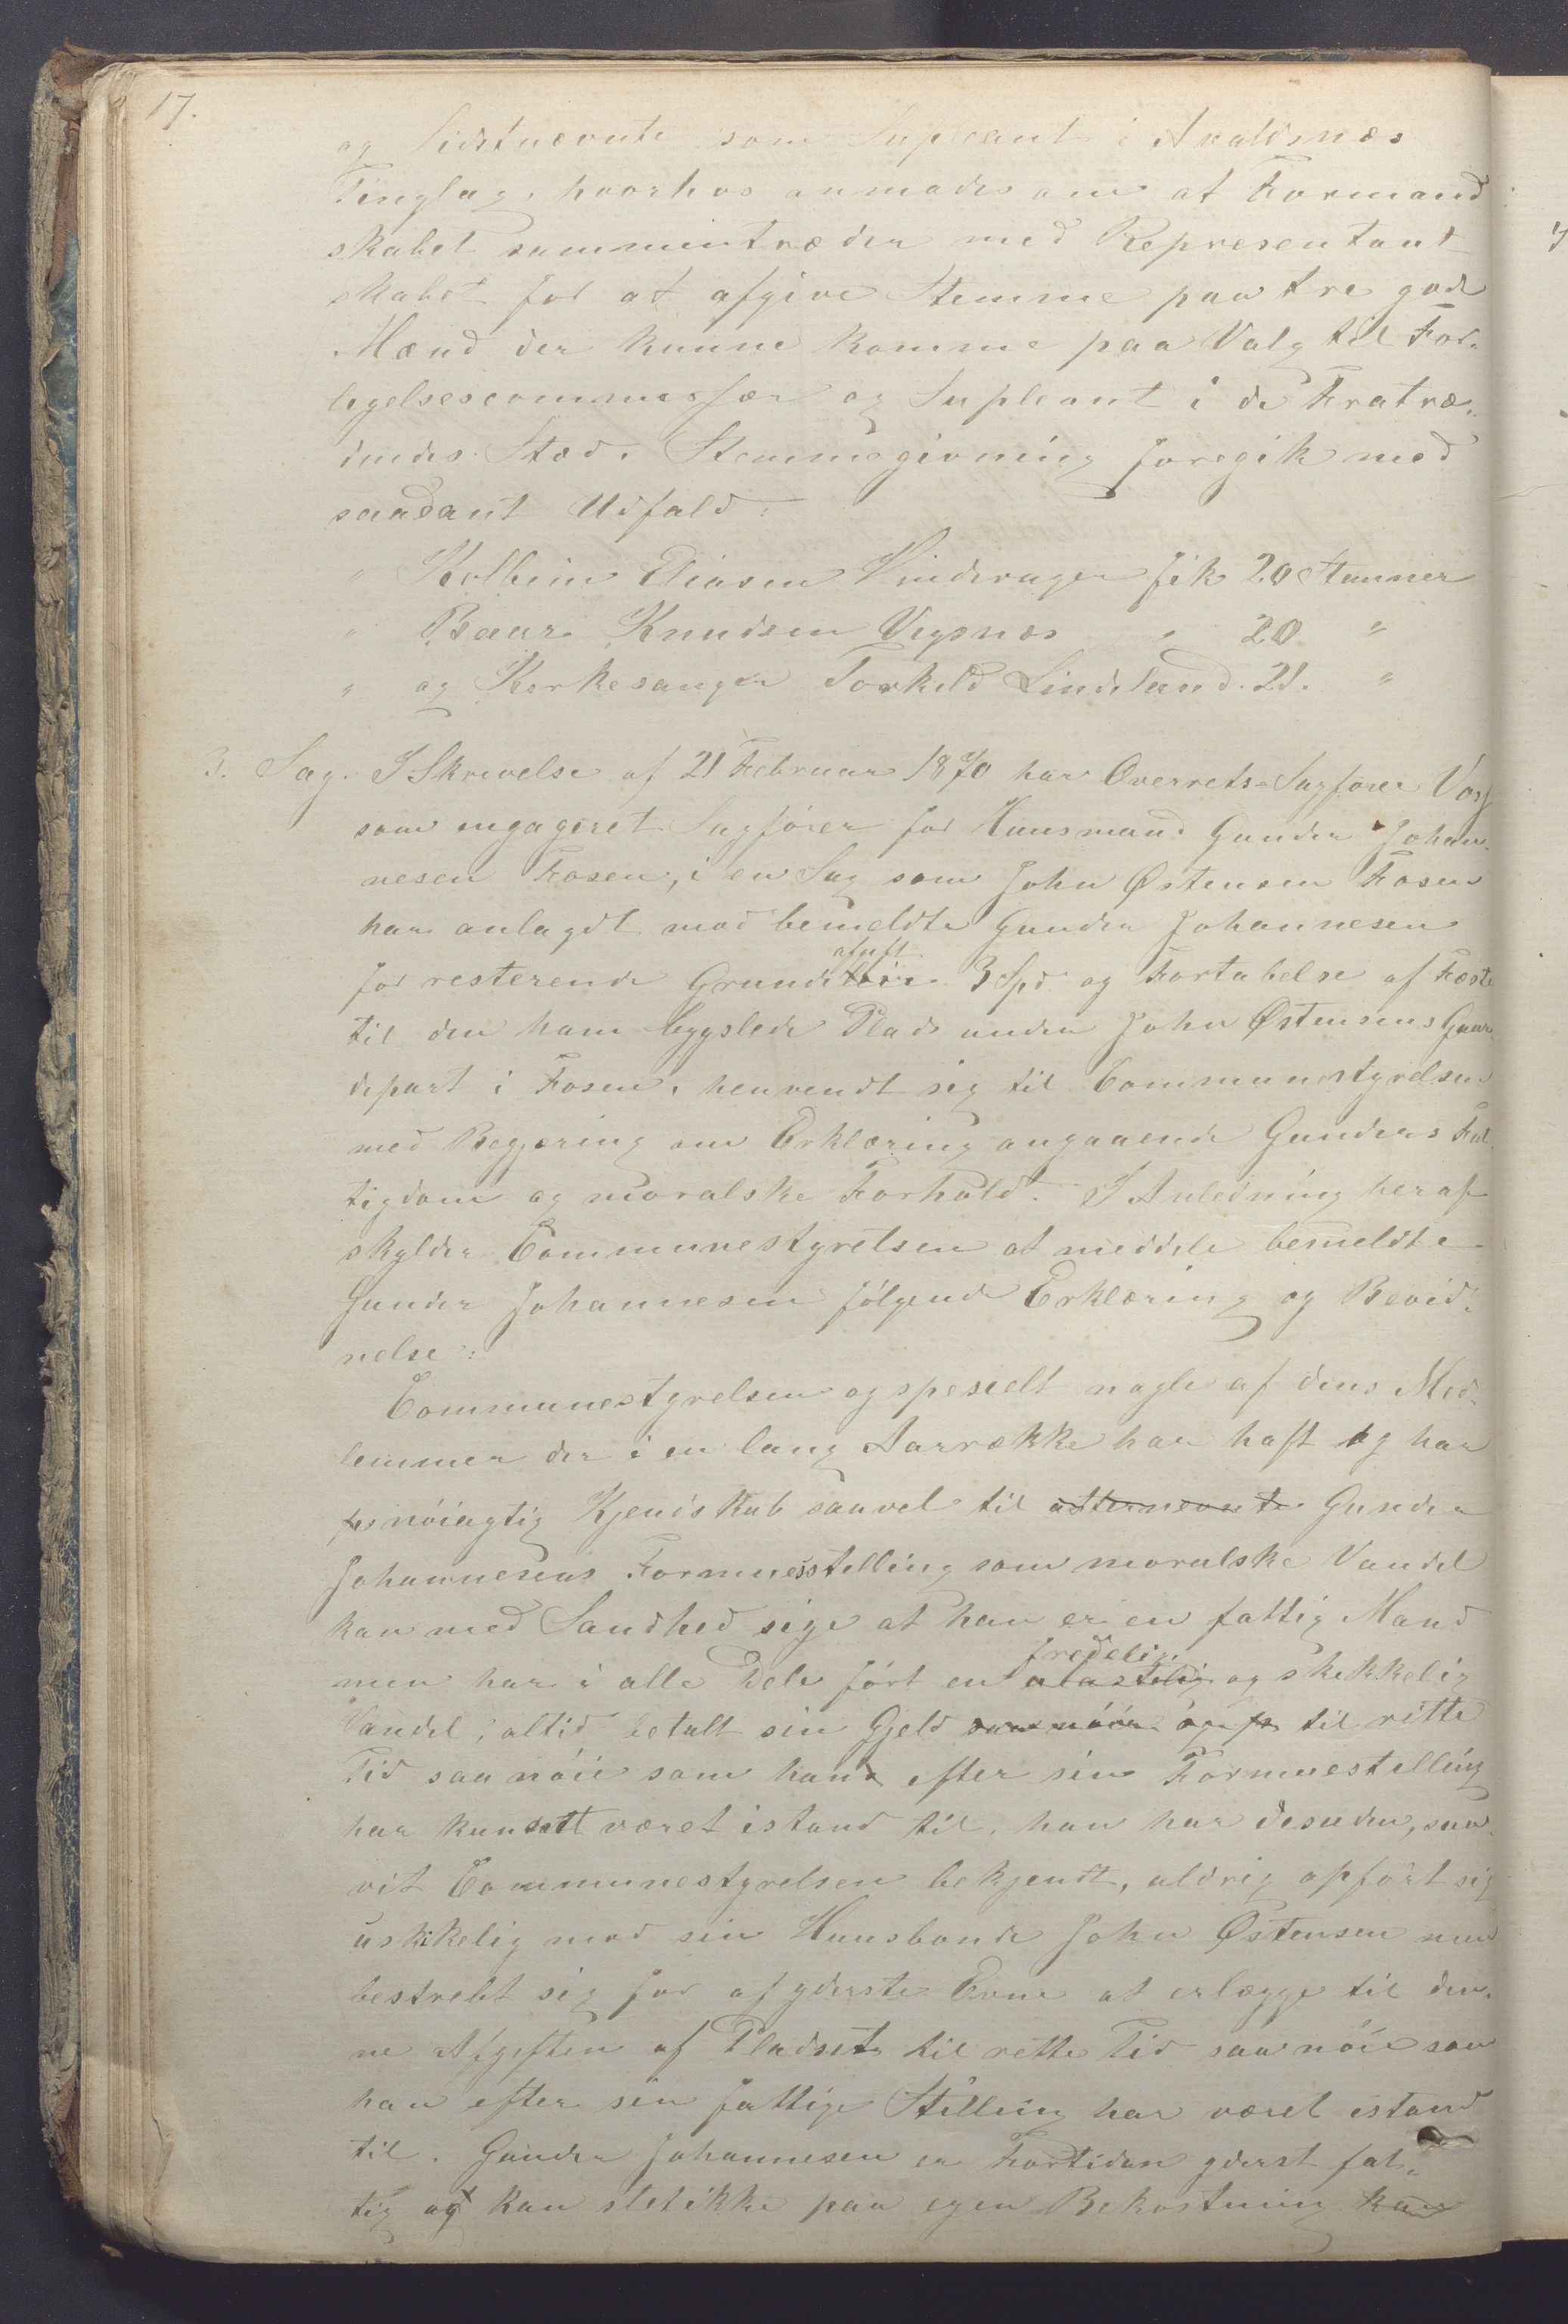 17.
og Sidstnævnte som Supleant i Avaldsnæs
Tinglag, hvorhos anmodes om at Formand
skabet sammentræder med Representant
skabet for at afgive Stemme paa tre gode
Mænd der kunne komme paa Valg til For-
ligelsescommissær og Supleant i de Fratræ-
dendes Sted. Stemmegivning foregik med
saadant Udfald:
" Kolbein Eliasen Vindvagen fik 20 Stemmer
" Baar Knudsen Vigsnæs " 20 "
" og Kirkesanger Torkild Lindeland. 21. "
3. Sag. I Skrivelse af 21 Februar 1870 har Overrets-Sagfører Voss
som engageret Sagfører for Huusmand Gunder Johan-
nesen Fosen, i en Sag som John Østensen Fosen
har anlagdt mod bemeldte Gunder Johannesen
afgift
for resterende Grundleie 3 Spd og Fortabelse af Fæste
til den ham bygslede Plads under John Østensens Gaar
depart i Fosen, henvendt sig til Communestyrelsen
med Begjæring om Erklæring angaaende Gunders Fat
tigdom og moralske Forhold. I Anledning heraf
skylder Communestyrelsen at meddele bemeldte
Gunder Johannesen følgende Erklæring og Bevid-
nelse:
Communestyrelsen og spesielt nogle af dens Med-
lemmer der i en lang Aarrække har haft og har
nøiagtig Kjendskab saavel til Gunder
Johannesens Formuesstilling som moralske Vandel
kan med Sandhed sige at han er en fattig Mand
fredelig
men har i alle Dele ført en ulastelig og skikkelig
Vandel, altid betalt sin Gjeld til rette
Tid saa nøie som han efter sin Formuestilling
har kunnet været istand til, han har desuden, saa-
vit Communestyrelsen bekjendt, aldrig opført sig
uskikkelig mod sin Huusbonde John Østensen men
bestrebt sig for af yderste Evne at erlægge til den-
ne Afgiften af Pladset til rette Tid saa nøie som
han efter sin fattige Stilling har været istand
til. Gunder Johannesen er Fortiden yderst fat-
tig og kan slet ikke paa egen Bekostning kan